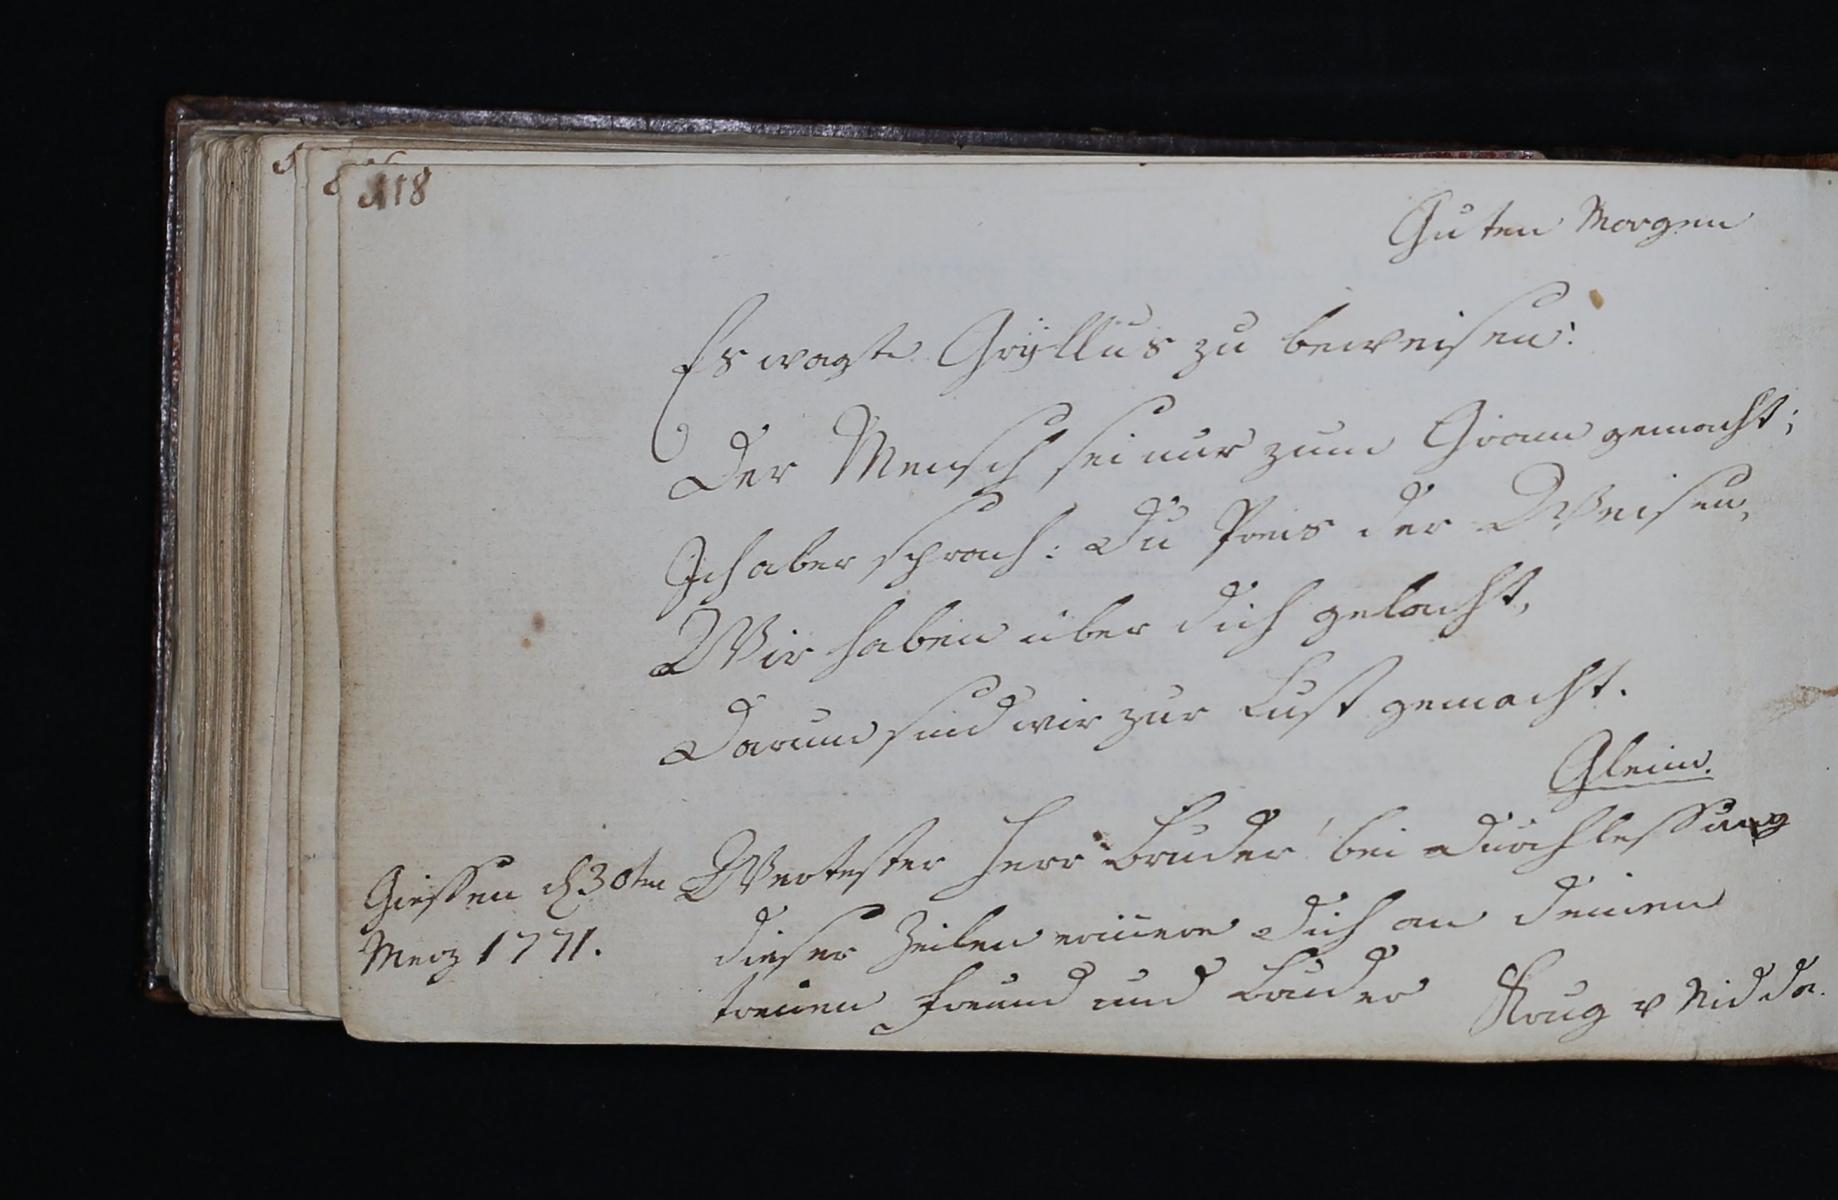 118
Guten Morgen
Es wagte Gryllus zu beweisen:
Der Mensch sei nur zum Gram gemacht;
Ich aber sprach: Du Preis der Weisen,
Wir haben über dich gelacht,
Darum sind wir zur Lust gemacht.
Gleim.
Giessen d 30ten
Merz 1771.
Wertester Herr Bruder bei Durchlessung
dieser Zeilen erinere Dich an deinen
treuen Freund und Bruder
Krug v Nidda.